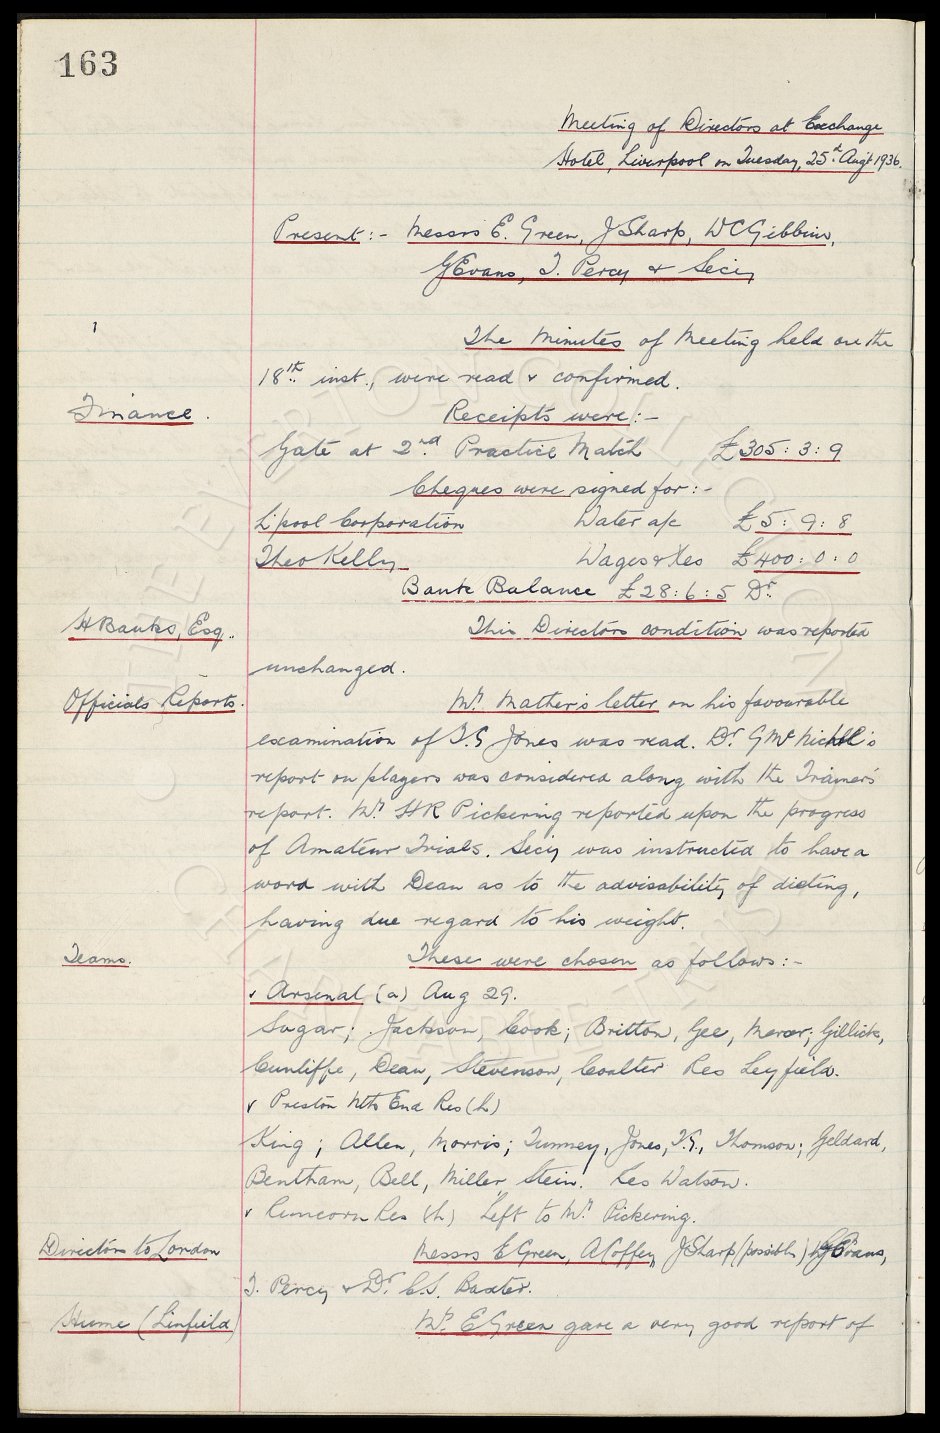 163
Meeting of Directors at Exchange
Hotel, Liverpool on Tuesday, 25th Aug't 1936.
Present:- Messrs E. Green, J Sharp, W C Gibbins,
G Evans, T. Percy & Secy
The Minutes of Meeting held on the
18th inst., were read & confirmed.
Finance. Receipts were:-
Gate at 2nd Practice Match £305:3:9
Cheques were signed for:-
L'pool Corporation Water a/c £5:9:8
Theo Kelly Wages & Xes £400:0:0
Bank Balance £28:6:5 Dr.
H Banks, Esq. This Directors condition was reported
unchanged.
Officials Reports. Mr. Mather's letter on his favourable
examination of T.G Jones was read. Dr. G McNicholl's
report on players was considered along with the Trainer's
report. Mr. H R Pickering reported upon the progress
of Amateur Trials. Secy was instructed to have a
word with Dean as to the advisability of dieting,
having due regard to his weight.
Teams. These were chosen as follows:-
v Arsenal (a) Aug 29.
Sagar; Jackson, Cook; Britton, Gee, Mercer; Gillick,
Cunliffe, Dean, Stevenson, Coulter Res Leyfield.
v Preston Nth End Res (h)
King; Allen, Morris; Tunney, Jones, T.G., Thomson; Geldard,
Bentham, Bell, Miller, Stein. Res Watson.
v Runcorn Res (h) Left to Mr. Pickering.
Directors to London Messrs E Green, A Coffey, J Sharp (possible), G Evans,
T. Percy & Dr. C.S. Baxter.
Hume (Linfield) Mr. E Green gave a very good report of